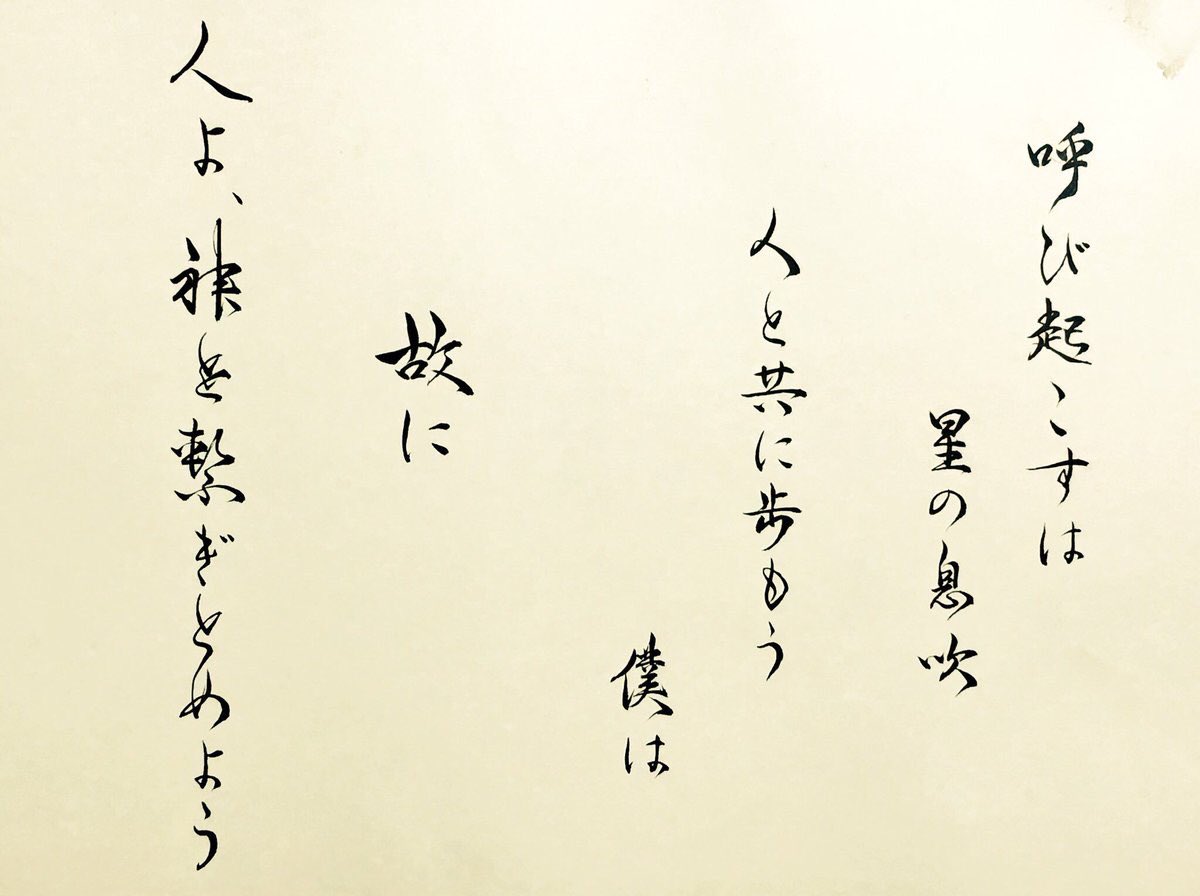 呼び起こすは
星の息吹
人と共に歩もう
僕は
故に
人よ、神を繋ぎとめよう